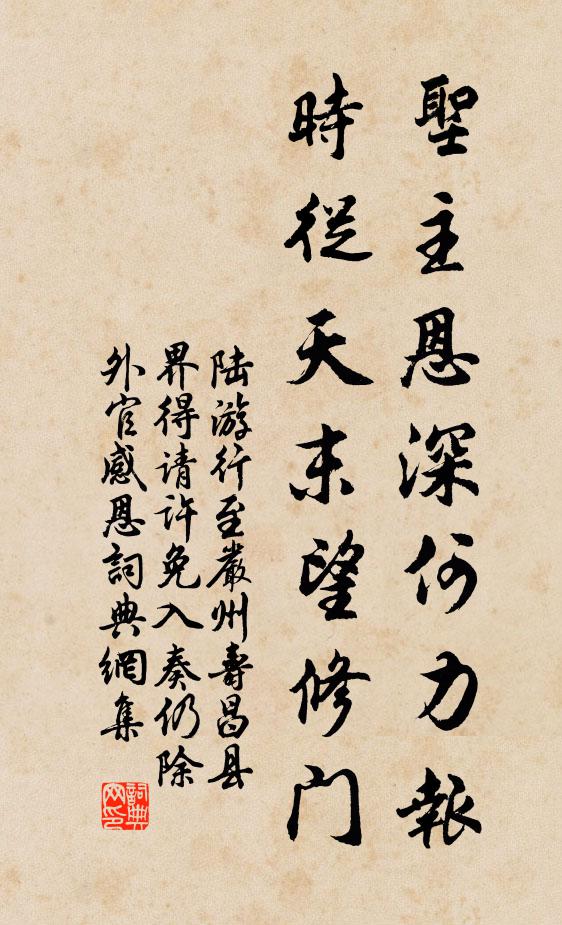 聖主恩深何力報
時從天末望修門
陆游行至嚴州壽昌县
界得请许免入奏仍除
外官感恩詞典網集
詞典
网印